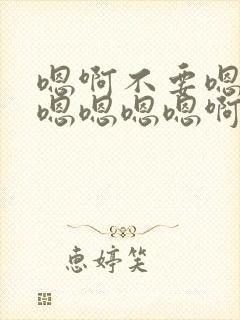 嗯啊不要嗯
嗯嗯嗯嗯啊
惠婷笑